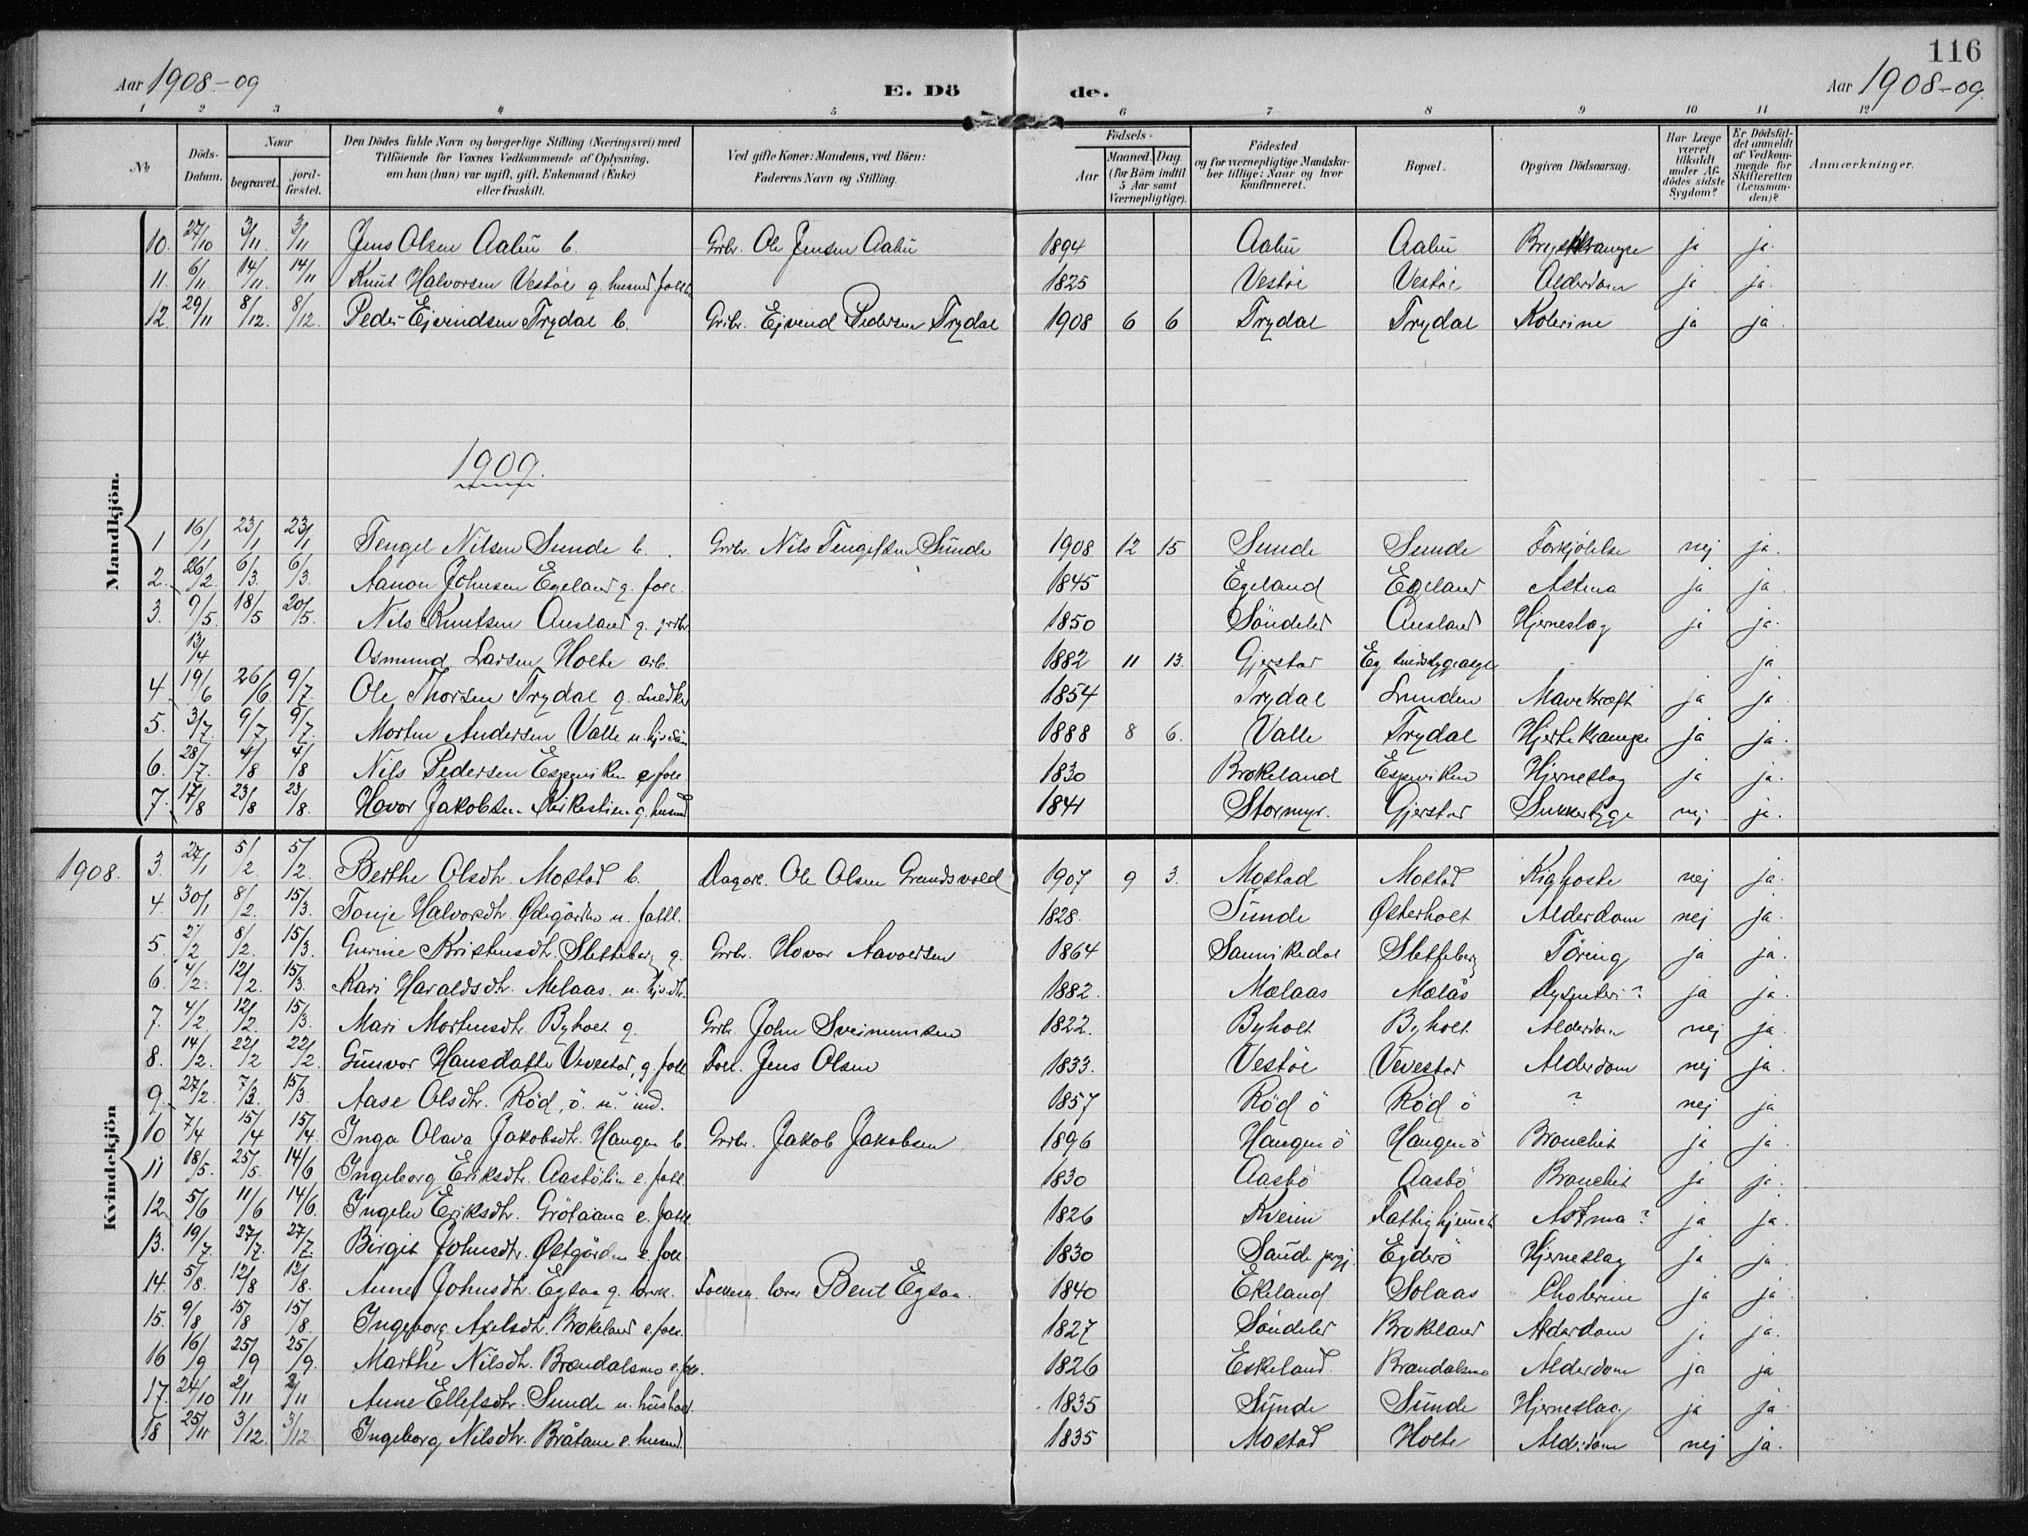 116
Aar 1908-09 E. Dö de. Aar 1908-09.
1 2 3 4 5 6 7 8 9 10 11 12
No Döds-Datum. Naar begravet. jord-fæstet. Den Dödes fulde Navn og borgerlige Stilling (Næringsvei) med Tilföiende för Voxnes Vedkommende af Oplysning, om han (hun) var ugift, gift, Enkemand (Enke) eller fraskilt. Ved gifte Koner: Mandens, ved Börn: Faderens Navn og Stilling. Födsels- Aar Maaned. Dag. (for Börn indtil 5 Aar samt Værnepligtige). Födested og for værnepligtige Mandskaber tillige: Naar og hvor konfirmeret. Bopæl. Opgiven Dödsaarsag. Har Læge været tilkaldt under Afdödes sidste Sygdom? Er Dödsfaldet anmeldt af Vedkommende for Skifteretten (Lensmanden)? Anmærkninger.
Mandkjön.
10. 27/10 3/11 3/11 Jens Olsen Aabu b. Grbr. Ole Jensen Aabu 1894 Aabu Aabu ja ja.
11. 6/11 14/11 14/11 Knut Halvorsen Vestöl g. husmd 1825 Vestöl Vestöl Alderdom ja ja.
12. 29/11 8/12. 8/12. Peder Ejvindsen Trydal b. Grbr. Ejvend Pedersen Trydal 1908 6 6 Trydal Trydal Kolerine ja ja.
1909.
1 16/1 23/1 23/1 Tengel Nilsen Sunde b. Grbr. Nils Tengelsen Sunde 1908 12 15 Sunde Sunde Forkjölelse nej ja.
2. 26/2 6/3. 6/3. Aanon Johnsen Egeland g. foll. 1845 Egeland Egeland Astma ja ja.
3. 9/5. 18/5 20/5. Nils Knutsen Ausland g. grbr. 1850 Söndeled Ausland Hjerneslag ja ja.
13/4 Osmund Larsen Holte arb. 1882 11 13. Gjerstad Eg sindssygeasyl - ja
4. 19/6 26/6 9/7. Ole Thorsen Trydal g. snedker 1854 Trydal Lunden Mavekræft ja ja
5. 3/7. 9/7. 9/7. Morten Andersen Valle u. 1888 8 6. Valle Trydal Hjertekrampe ja ja.
6. 28/7. 4/8 4/8 Nils Pedersen Espeviken foll. 1830 Brokeland Espeviken Hjerneslag ja ja.
7. 17/8 23/8 23/8. Hovor Jakobsen Kirkestien g. husmd 1841 Stormyr. Gjerstad Sukkersyge nej ja.
Kvindekjön
1908. 3. 27/1 5/2. 5/2. Berthe Olsdtr. Mostad b. Dagarb. Ole Olsen Grandsvold 1907 9 3. Mostad Mostad Kighoste nej ja.
4. 30/1 8/2. 15/3. Tonje Halvorsdtr Ødegården u. fattl. 1828. Sunde Østerholt Alderdom nej ja.
5. 2/2 8/2. 15/3 Gurine Kristensdtr. Sletteberg g. Grbr. Hovor Aavoldsen 1864 Sannikedal Sletteberg Tæring ja ja.
6. 4/2. 12/2. 15/3. Kari Haraldsdtr. Melaas u. 1882. Mælaas Mælås Dysenteri? ja ja.
7. 4/2. 12/2. 15/3. Mari Mortensdtr Byholt g. Grbr. John Sveinunsen 1822. Byholt Byholt Alderdom nej ja.
8. 14/2. 22/2 22/2. Gunvor Hansdatter Vevestad, g. foll. Foll. Jens Olsen 1833. Vestöl Vevestad Alderdom nej ja.
9. 27/2. 7/3. 15/3. Aase Olsdtr. Röd, ö. u. ind. 1857 Röd ö Röd ö ? nej ja
10 7/4 15/4 15/4 Inga Olava Jakobsdtr. Haugen b. Grbr. Jakob Jakobsen 1896 Haugen ö Haugen ö Bronchit ja ja.
11 18/5. 25/5. 14/6 Ingeborg Eriksdtr. e. foll. 1830 Aasbö Aasbö Bronchit ja ja.
12. 5/6 11/6 14/6. Ingeborg Eriksdtr. Grötaana e. fattl. 1826 Kveim Fattighjemmet Astma? ja ja.
13. 19/7. 27/7. 27/7. Birgit Johnsdtr. Østgården e. foll. 1830 Sande prgj. Egderö Hjerneslag ja ja
14. 5/8. 12/8 12/8. Anne Johnsdtr. Egsaa g. lærer Bent Egsaa. 1840 Ekeland Solaas Cholerine ja ja
15. 9/8 15/8 15/8. Ingeborg Axelsdtr. Brokeland e. foll. 1827 Söndeled Brokeland Alderdom ja ja.
16 16/9 25/9 25/9. Marthe Nilsdtr. Brændalsmo e. foll. 1826 Eskeland. Brændalsmo Alderdom ja ja
17. 24/10 2/11 2/11 Anne Ellefsdtr. Sunde u. 1835 Sunde Sunde Hjerneslag ja ja.
18 25/11 3/12. 3/12 Ingeborg Nilsdtr. Bråtane e. husmd. 1835 Mostad Holte Alderdom nej ja.